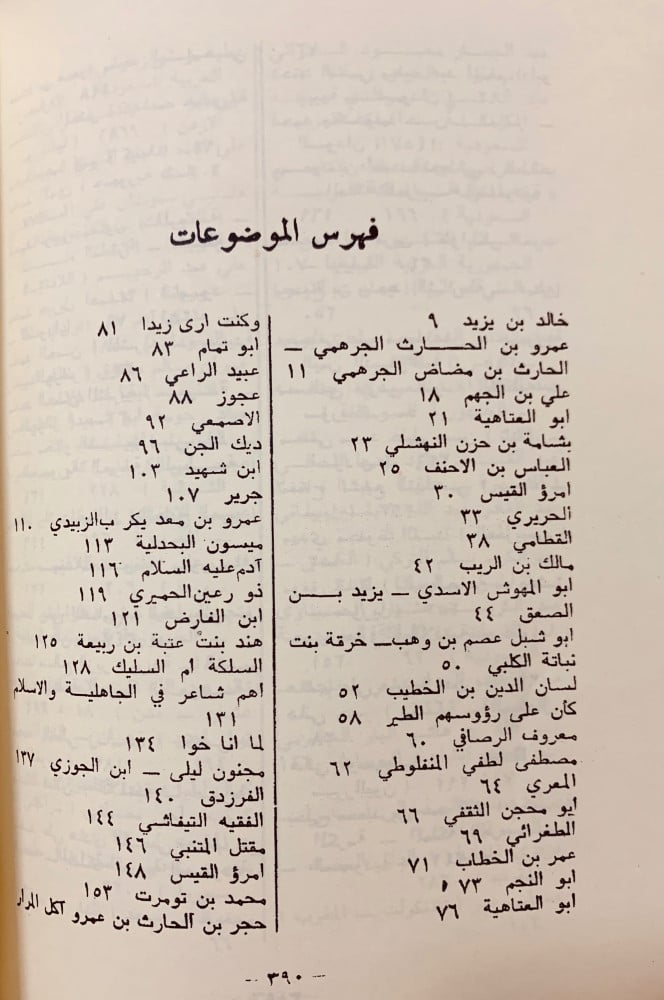 فهرس الموضوعات
خالد بن يزيد ٩
عمرو بن الحـــارث الجرهمي ــ
الحارث بن مضاض الجرهمي ١١
علي بن الجهم ١٨
ابو العتاهية ٢١
بشامة بن حزن النهشلي ٢٣
العباس بن الاحنف ٢٥
امرؤ القيس ٣٠
الحريري ٣٣
القطامي ٣٨
مالك بن الريب ٤٢
ابو المهوش الاسدي ــ يزيد بـــن
الصعق ٤٤
ابو شبل عصم بن وهب ــ خرقة بنت
نباتة الكلبي ٥٠
لسان الدين بن الخطيب ٥٢
كأن على رؤوسهم الطير ٥٨
معروف الرصافي ٦٠
مصطفى لطفي المنفلوطي ٦٢
المعري ٦٤
ابو محجن الثقفي ٦٦
الطغرائي ٦٩
عمر بن الخطاب ٧١
ابو النجم ٧٣
ابو العتاهية ٧٦
وكنت ارى زيدا ٨١
ابو تمام ٨٣
عبيد الراعي ٨٦
عجوز ٨٨
الاصمعي ٩٢
ديك الجن ٩٦
ابن شهيد ١٠٣
جرير ١٠٧
عمرو بن معد يكر ب الزبيدي ١١٠
ميسون البحدلية ١١٣
آدم عليه السلام ١١٦
ذو رعين الحميري ١١٩
ابن الفارض ١٢١
هند بنت عتبة بن ربيعة ١٢٥
السلكة أم السليك ١٢٨
اهم شاعر في الجاهلية والاسلام
١٣١
لما انا خوا ١٣٤
مجنون ليلى ــ ابن الجوزي ١٣٧
الفرزدق ١٤٠
الفقيه التيفاشي ١٤٤
مقتل المتنبي ١٤٦
امرؤ القيس ١٤٨
محمد بن تومرت ١٥٣
حجر بن الحارث بن عمرو آكل المرار
ــ ٣٩٠ ــ